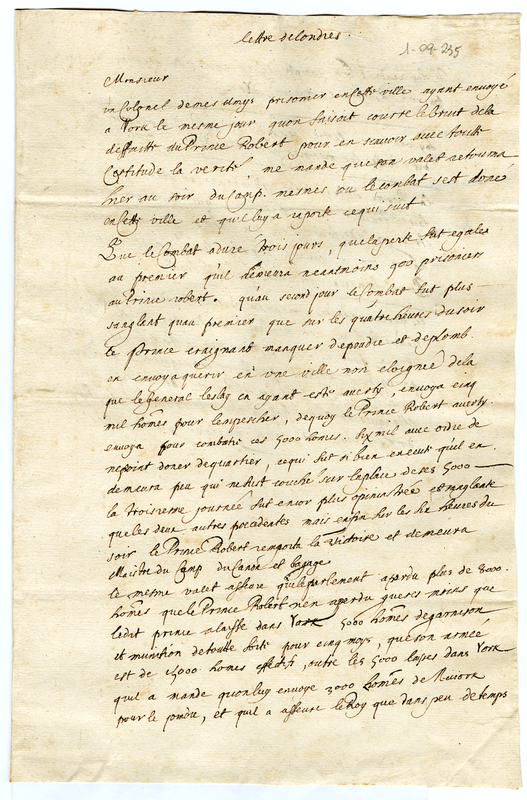 lettre de londres.
1-09-235
Monsieur
un Colonel de mes amys prisonier en cette ville ayant envoyé
a York le mesme jour quon faisoit courre le bruit de la
deffaitte du Prince Robert pour en scavoir avec toutte
Certitude la verité, me mande que son valet retourna
hier au soir du Camp mesmes ou le combat sest doné
en cette ville et quil luy a raporté ce qui suit
Que le Combat a duré trois jours, que la perte fut egalle
au premier quil demeura neantmoins 900 prisoniers
au Prince robert. quau second jour le Combat fut plus
sanglent quau premier que sur les quatre heures du soir
le Prince craignant manquer de poudre et de plomb
en envoya querir en une ville non eloignee de la
que le General lesley en ayant esté averty, envoya cinq
mil hom̃es pour lempescher, de quoy le Prince Robert averty
envoya pour combatre ces 5000 homes. six mil avec ordre de
ne point doner de quartier, ce qui fut si bien execute quil en
demeura peu qui ne fust couché sur la place de ces 5000
la troisiesme journée fut encor plus opiniastrée et sanglante
que les deux autres precedentes mais enfin sur les six heures du
soir le Prince Robert remporta la victoire et demeura
Maistre du Camp du Canon et bagage
le mesme valet asseure que le parlement a perdu plus de 8000.
hom̃es que le Prince Robert nen a perdu gueres moins que
ledit prince a laissé dans York 5000 hom̃es de garnison
et munition de toutte sorte pour cinq moys, que son armée
est de 15000 homes effectif, outre les 5000 laissés dans York
quil a mandé quon luy envoye 2000 hom̃es de
pour le joindre, et quil a asseuré le Roy que dans peu de temps